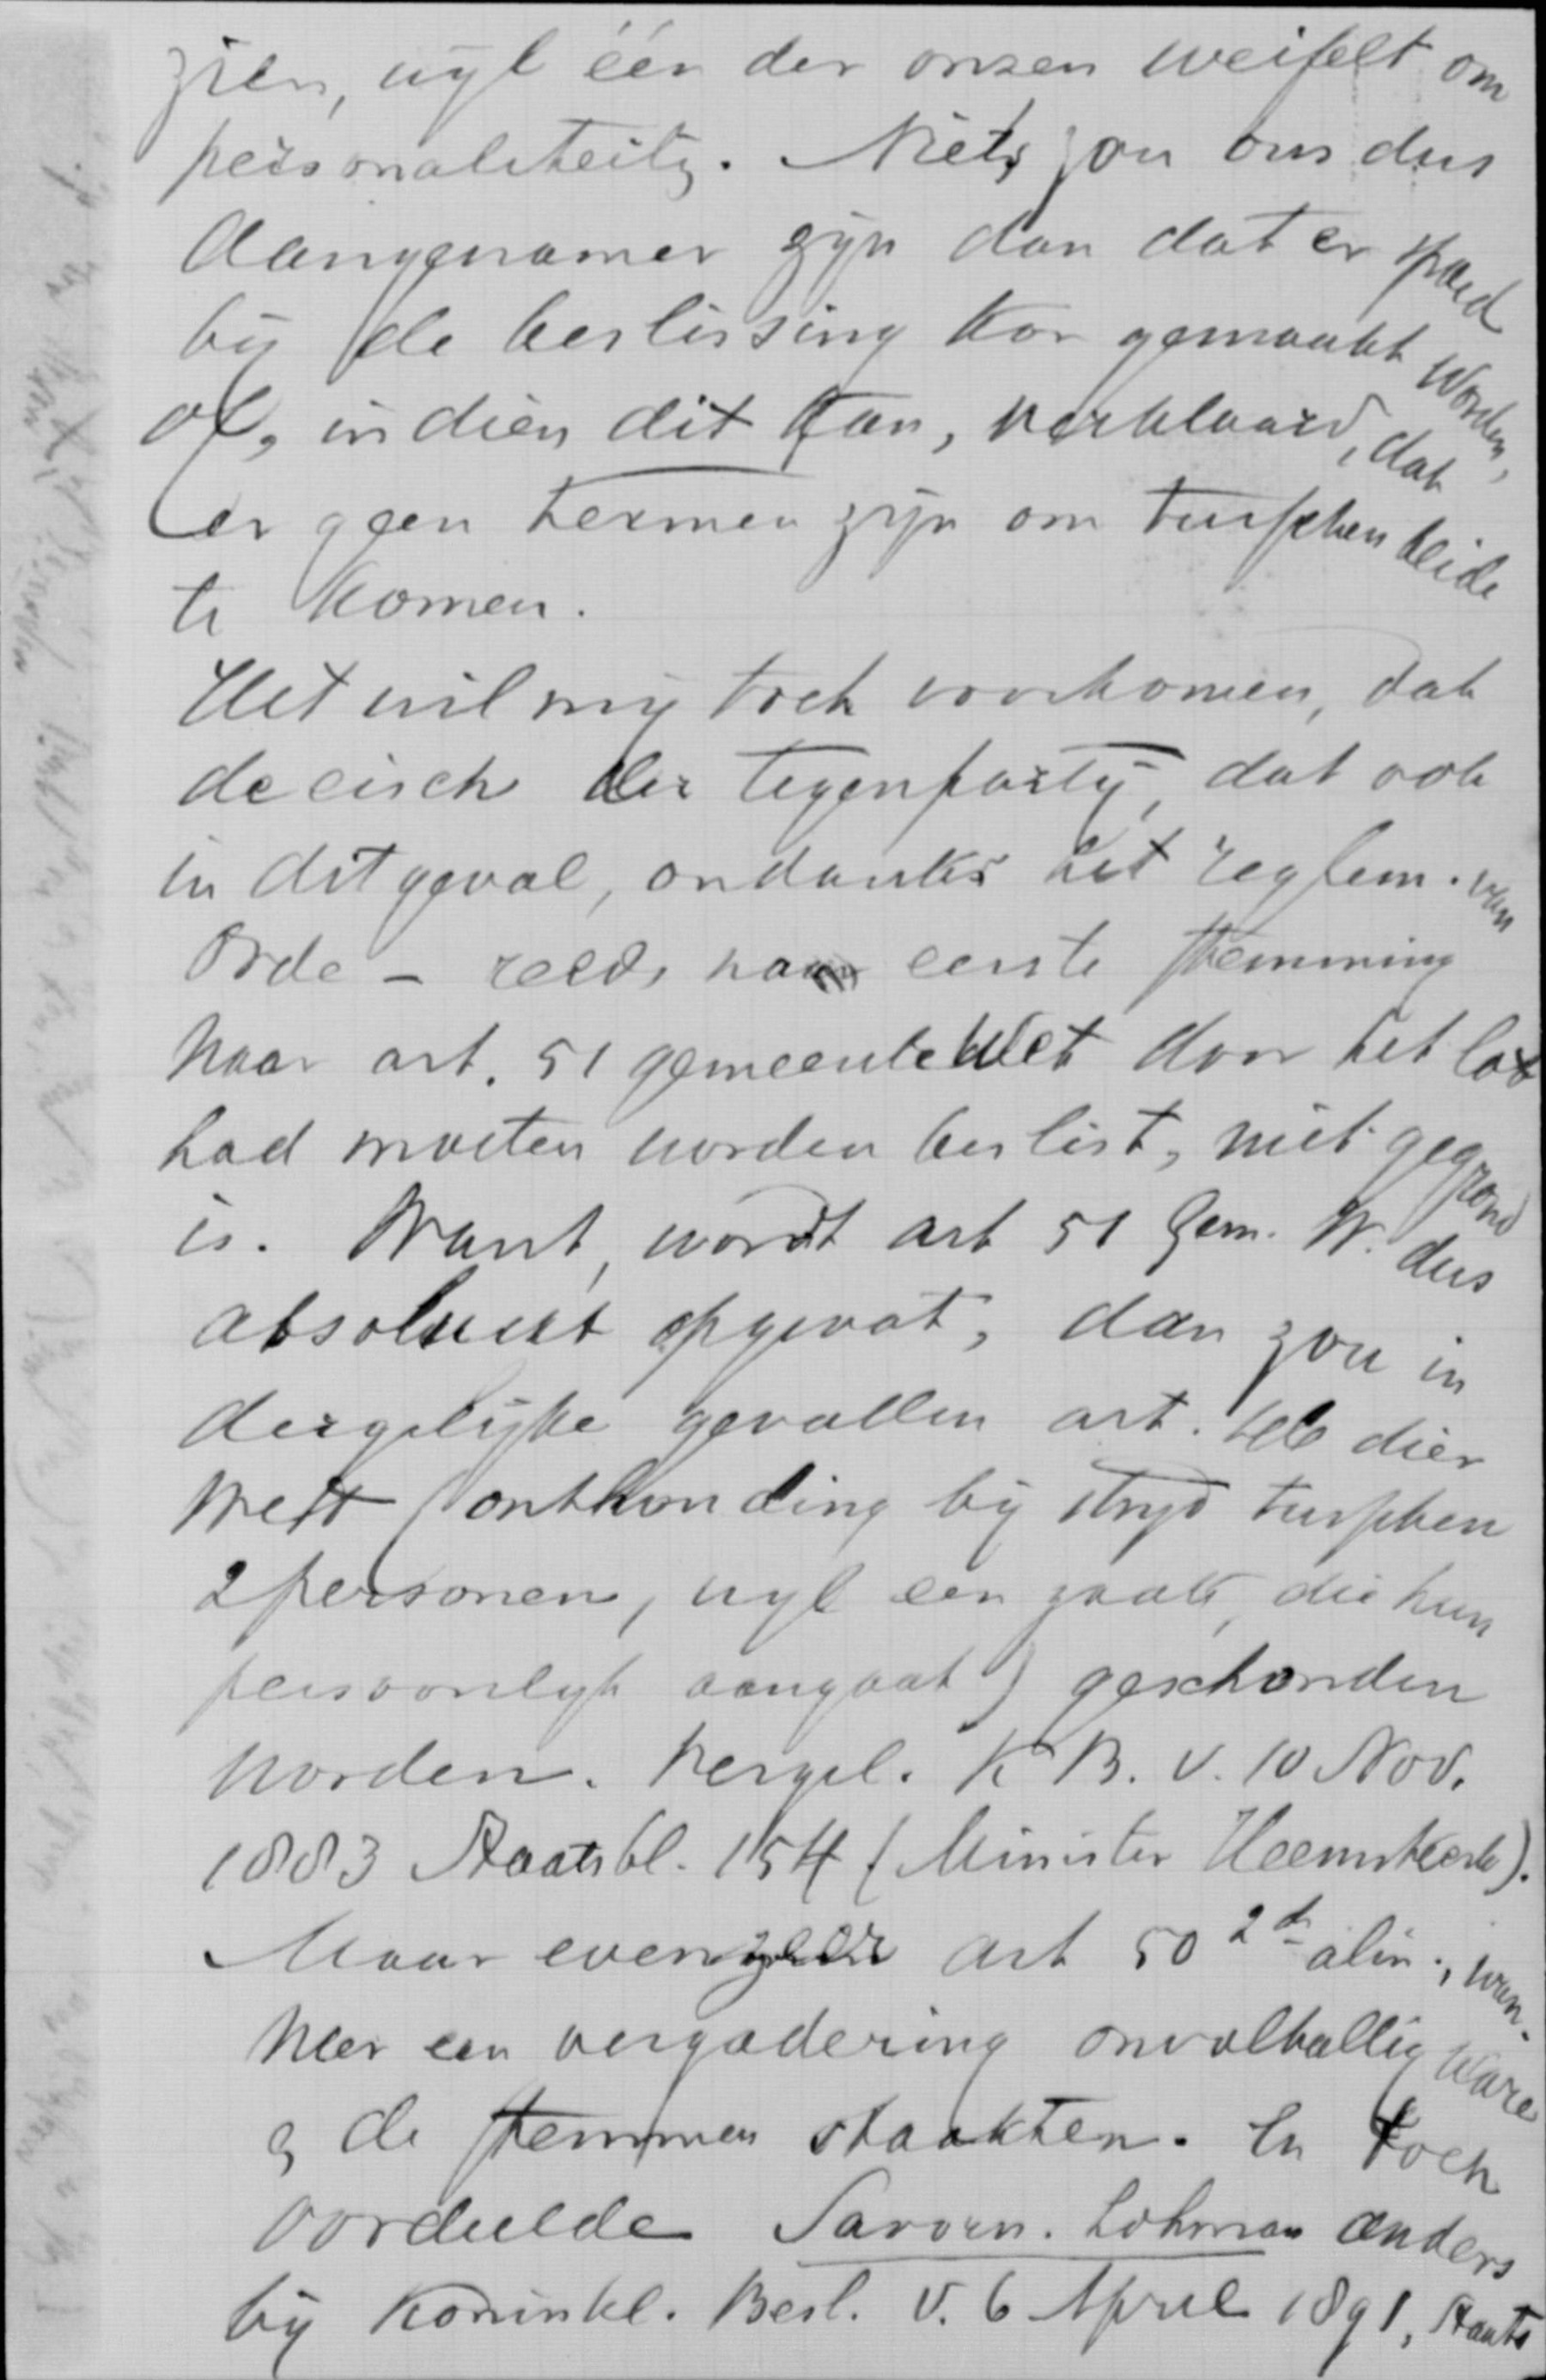 zien, wyl één der onzen weifelt om
personaliteitz. Niets zou ons dus
Aangenamer zyn dan dat er spoed
bij de beslissing kon gemaakt worden,
of, indien dit kan, verklaard, dat
er geen termen zijn om tusschen beide
te komen.
Het wil mij toch voorkomen, dat
de eisch der tegenpartij, dat ook
in dit geval, ondanks het reglem. van
Orde - reeds na eerste stemming
naar art. 51 gemeentewet door het lot
had moeten worden beslist, niet gegrond
is. Want, wordt art 51 Gem. W. dus
absoluut opgevat, dan zou in
dergelijke gevallen art. 46 dier
Wet (onthouding bij stryd tusschen
2 personen, wyl een zaak, die hun
persoonlyk aangaat) geschonden
worden. Vergel. K B. v. 10 Nov.
1883 Staatsbl. 154 (Minister Heemskerk).
Maar evenzeer art 50 2de alin., wan-
neer een vergadering onvoltallig ware
& de stemmen staakten. En toch
oordeelde Savorn. Lohman anders
bij Koninkl. Besl. v. 6 April 1891, Staats